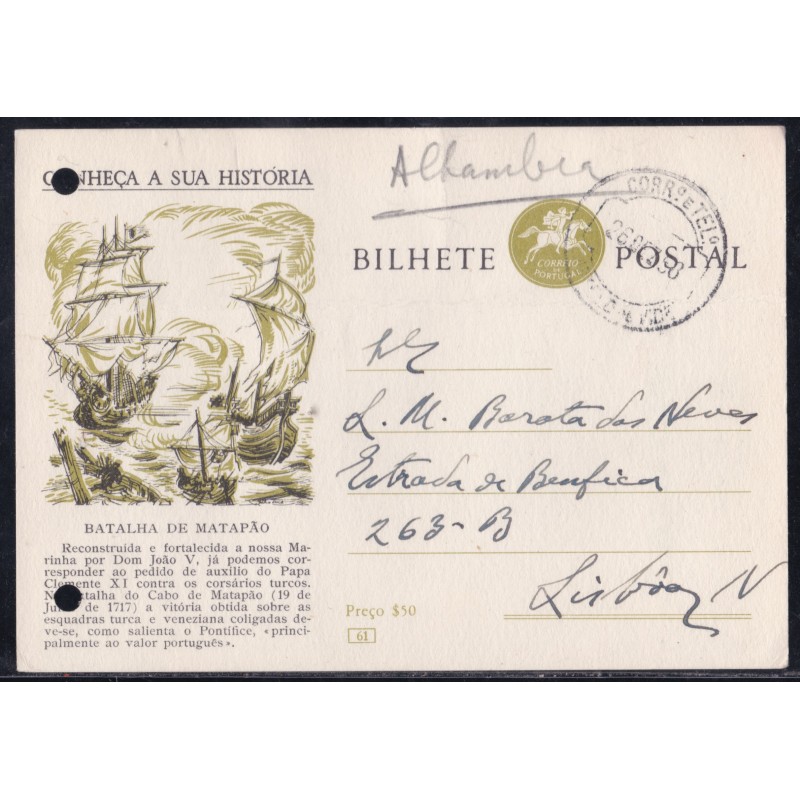 Alhambra
CONHEÇA A SUA HISTÓRIA
BILHETE POSTAL
CORREIO
DE
PORTUGAL
CORR. E TEL.
L. M. Barata das Neves
Estrada de Benfica
263-B
Lisbôa N
BATALHA DE MATAPÃO
Reconstruída e fortalecida a nossa Ma-
rinha por Dom João V, já podemos cor-
responder ao pedido de auxílio do Papa
Clemente XI contra os corsários turcos.
Na batalha do Cabo de Matapão (19 de
de 1717) a vitória obtida sobre as
esquadras turca e veneziana coligadas de-
ve-se, como salienta o Pontífice, «princi-
palmente ao valor português».
Preço $50
61